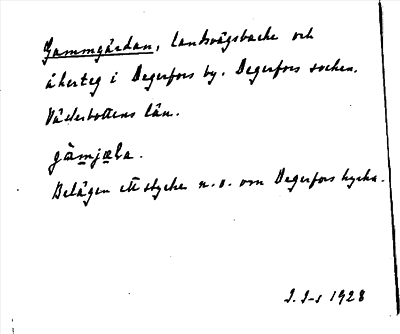 Gammgärdan, landsvägsbacke och
åkerteg i Degerfors by. Degerfors socken.
Västerbottens län.
gàmjæla.
Belägen ett stycke n.o. om Degerfors kyrka.
J. J-s 1928